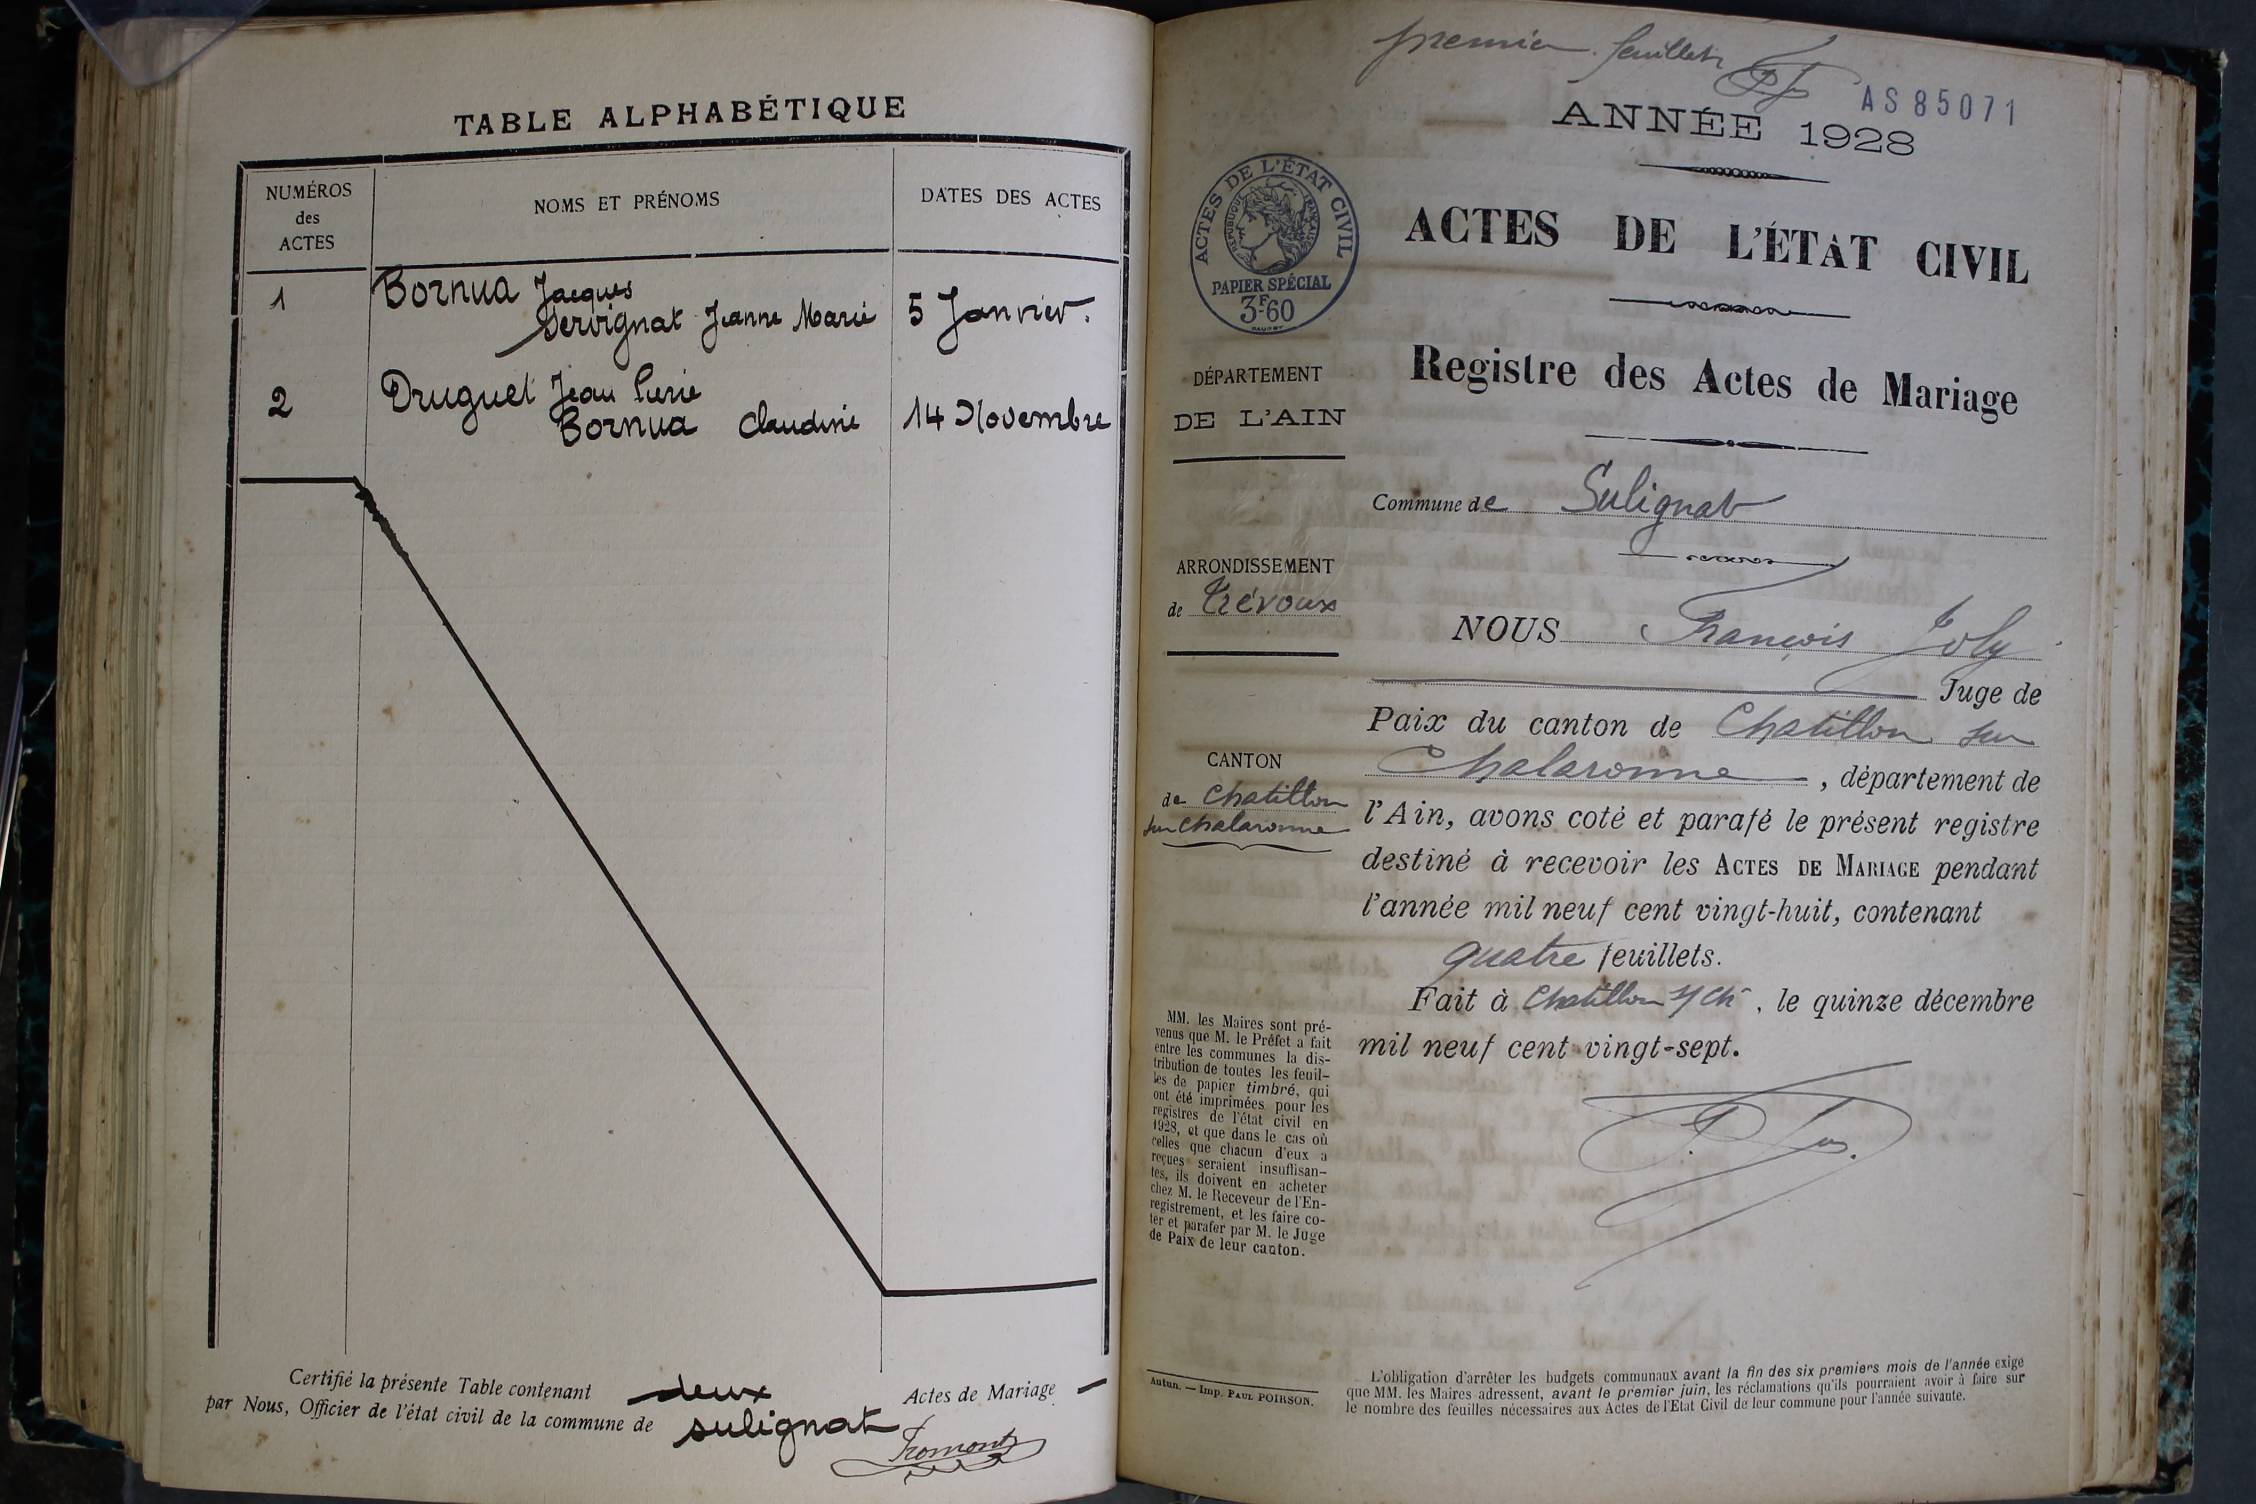 TABLE ALPHABÉTIQUE
NUMÉROS
des
ACTES
NOMS ET PRÉNOMS
DATES DES ACTES
1
Bornua Jacques
Servignat Jeanne Marie
5 Janvier.
2
Druguet Jean Pierre
Bornua Claudine
14 Novembre
Certifié la présente Table contenant deux Actes de Mariage
par Nous, Officier de l'état civil de la commune de sulignat
Fromont
premier feuillet
AS85071
ANNÉE 1928
ACTES DE L'ÉTAT CIVIL
RÉPUBLIQUE FRANÇAISE
PAPIER SPÉCIAL
3F60
ACTES DE L'ÉTAT CIVIL
Registre des Actes de Mariage
DÉPARTEMENT
DE L'AIN
Commune de Sulignat
ARRONDISSEMENT
de Trévoux
NOUS François Joly
Juge de
Paix du canton de Chatillon sur
Chalaronne, département de
CANTON
de Chatillon
sur Chalaronne
l'Ain, avons coté et parafé le présent registre
destiné à recevoir les ACTES DE MARIAGE pendant
l'année mil neuf cent vingt-huit, contenant
quatre feuillets.
Fait à Chatillon s/ Ch, le quinze décembre
mil neuf cent vingt-sept.
MM. les Maires sont pré-
venus que M. le Préfet a fait
entre les communes la dis-
tribution de toutes les feuil-
les de papier timbré, qui
ont été imprimées pour les
registres de l'état civil en
1928, et que dans le cas où
celles que chacun d'eux a
reçues seraient insuffisan-
tes, ils doivent en acheter
chez M. le Receveur de l'En-
registrement, et les faire co-
ter et parafer par M. le Juge
de Paix de leur canton.
Autun. — Imp. PAUL POIRSON.
L'obligation d'arrêter les budgets communaux avant la fin des six premiers mois de l'année exige
que MM. les Maires adressent, avant le premier juin, les réclamations qu'ils pourraient avoir à faire sur
le nombre des feuilles nécessaires aux Actes de l'Etat Civil de leur commune pour l'année suivante.